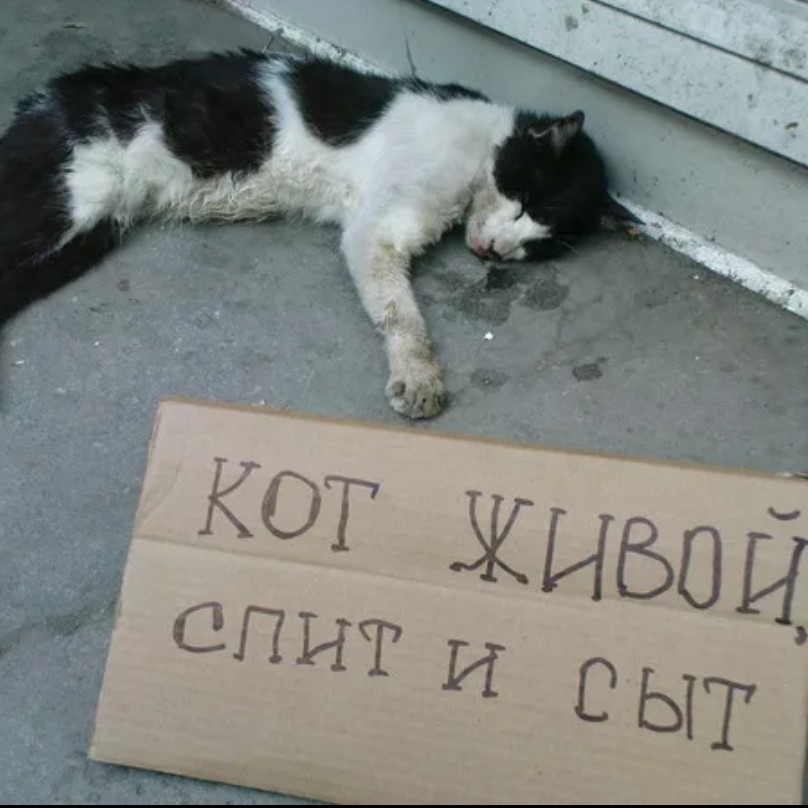 КОТ ЖИВОЙ,
СПИТ И СЫТ